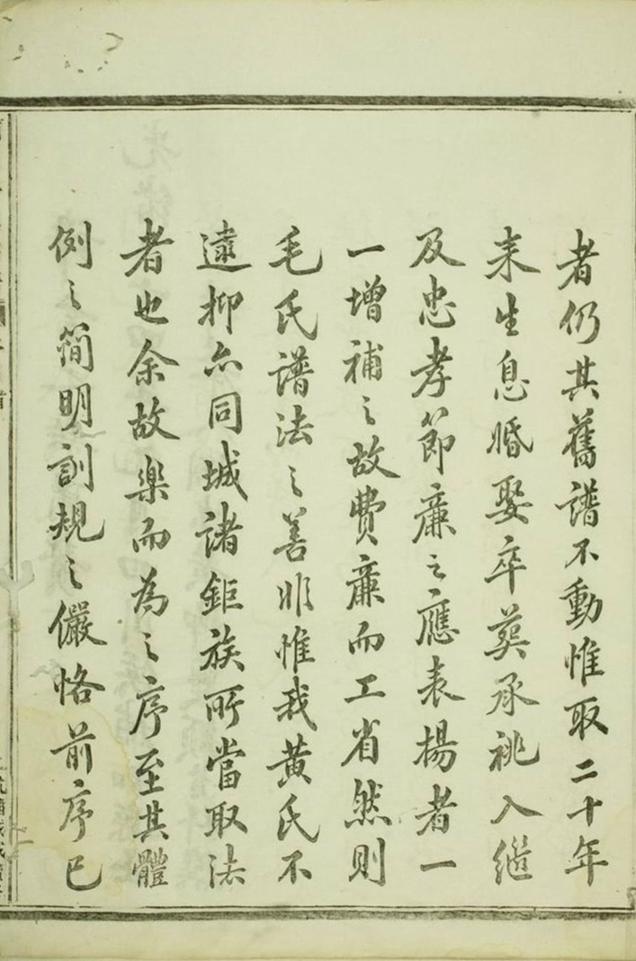 者仍其舊譜不動惟取二十年
来生息婚娶卒葬承祧入繼
及忠孝節廉之應表揚者一
一增補之故費廉而工省然則
毛氏譜法之善非惟我黄氏不
逮抑亦同城諸鉅族所當取法
者也余故樂而為之序至其體
例之簡明訓規之儼恪前序已